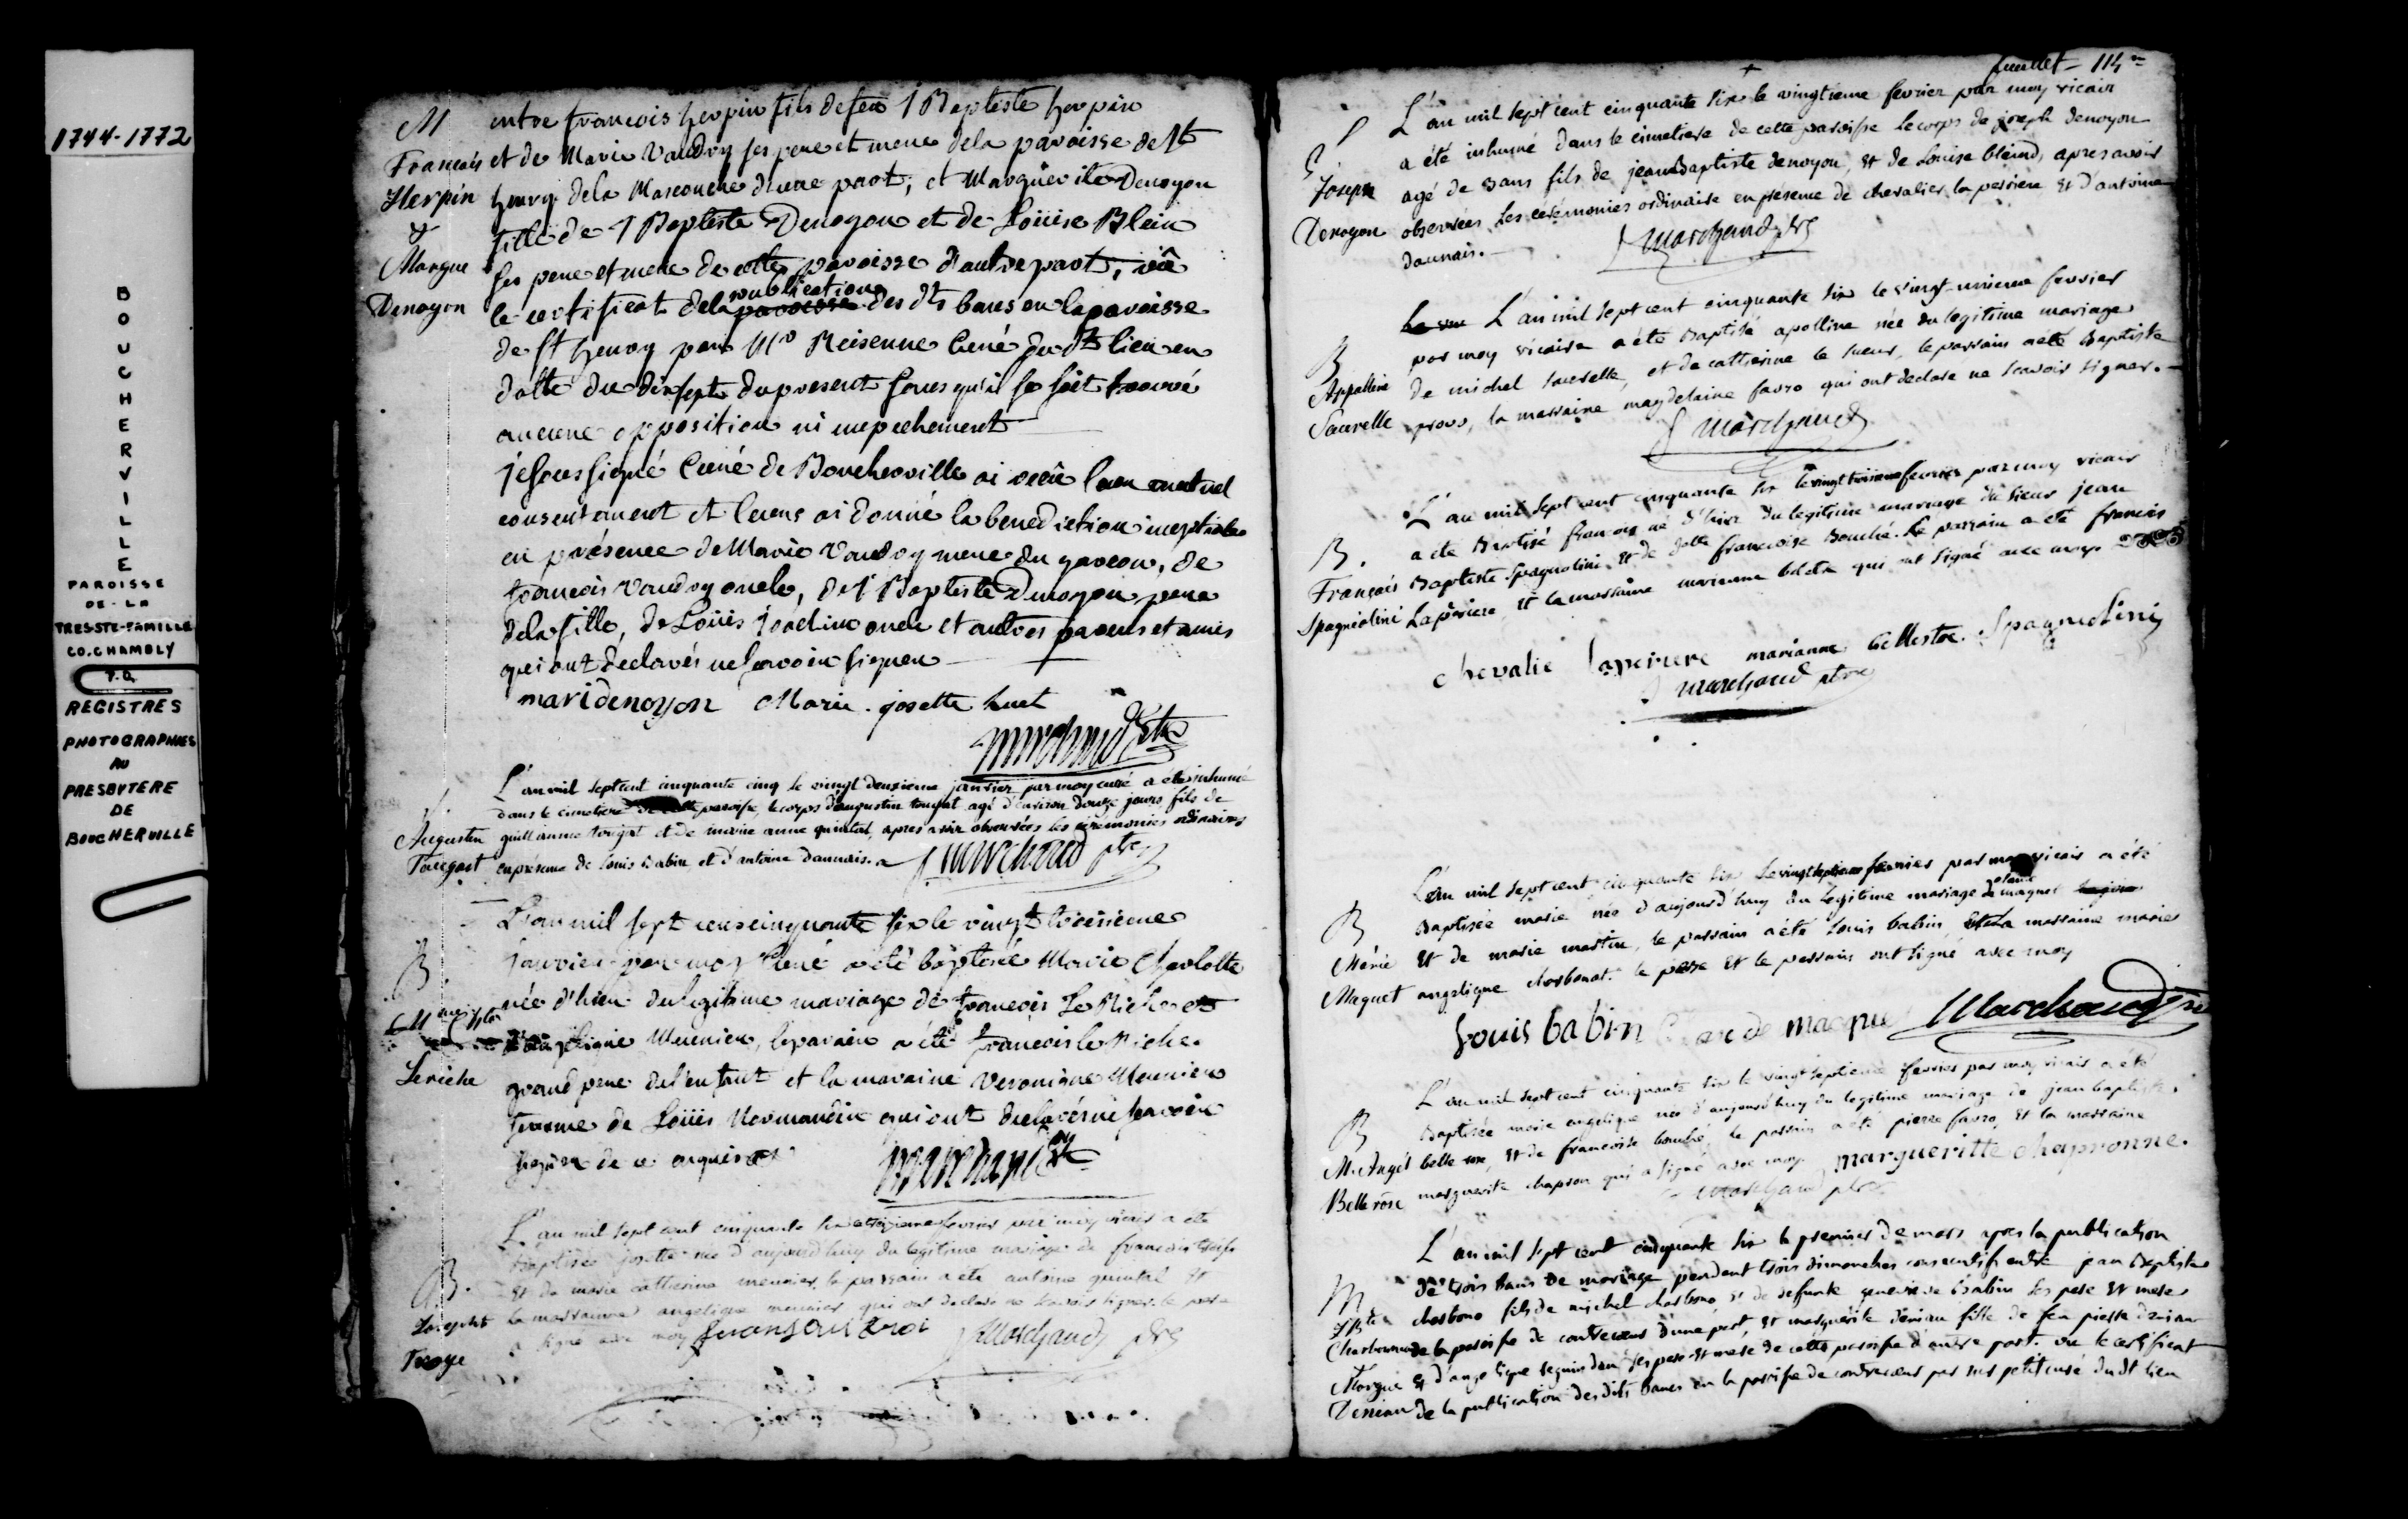 1744-1772
BOUCHERVILLE
PAROISSE
DE-LA
TRES STE-FAMILLE
CO. CHAMBLY
P.Q.
REGISTRES
PHOTOGRAPHIES
AU
PRESBYTERE
DE
BOUCHERVILLE
M
Francois
Herpin
&
Margue
Denoyon
entre francois herpin fils defeu J Baptiste herpin
et de Marie Vaudry ses pere et mere dela paroisse de St
henry dela Mascouche d'une part, et Marguerite Denoyon
fille de J Baptiste Denoyon et de Loüise Blein
ses pere et mere de cette paroisse d'autre part, vû
le certificat dela publication des dts bans en la paroisse
de St henry par Mr Curé du dt lieu en
datte du dixsept du present sans qu'il se soit trouvé
aucune opposition ni empechement
je soussigné Curé de Boucherville ai recû leur mutuel
consentement et leurs ai donné la benediction nuptiale
en présence de Marie Vaudry mere du garcon, de
francois Vaudry oncle, de J Baptiste Denoyon pere
dela fille, de Loüis oncle et autres parens et amis
qui ont declarés ne scavoir signer
maridenoyon Marie josette huet
marchand ptre
S.
Augustin
Tougart
L'an mil sept cent cinquante cinq le vingt deuxieme janvier par moy curé a été inhumé
dans le cimetiere de cette paroisse, le corps d'augustin tougat agé d'environ douze jours, fils de
guillaume tougat et de marie anne quintal, apres avoir observées les cérémonies ordinaires
en présence de louis babin, et d'antoine daunais.
marchand ptre
B
Leriche
L'an mil sept cens cinquante six le vingt troisieme
janvier par moy Curé a été baptisée Marie Charlotte
née d'hier du legitime mariage de francois Le Riche et
d'angelique Meunier, le parain a été francois le Riche
grand pere de l'enfant et la maraine Veronique Meunier
femme de Loüis Normandin qui ont declarés ne scavoir
signer de ce enquis
marchand ptre
B.
Josephte
Troye
L'an mil sept cent cinquante six fevrier par moy vicair a été
baptisée josette née d'aujourd'huy du legitime mariage de francois
Et de marie catherine meunier, le parrain a été antoine quintal Et
la marrainne angelique meunier qui ont declaré ne scavoir signer. le pere
a signé avec moy
Marchand ptre
feuillet - 114 m
S
Joseph
Denoyon
L'an mil sept cent cinquante six le vingtieme fevrier par moy vicair
a été inhumé dans le cimetiere de cette paroisse le corps de joseph denoyon
agé de 3 ans fils de jean Baptiste denoyon, et de Louise bleind, apres avoir
observées les cérémonies ordinaire en présence de chevalier la perriere Et d'antoine
daunais.
marchand ptre
B
Appolline
Saurelle
L'an mil sept cent cinquante six le vingt-unieme fevrier
par moy vicaire a été Baptisé apolline née du legitime mariage
de michel saurelle, et de catherine le sueur, le parrain a été Baptiste
prou, la marraine magdelaine favro qui ont declare ne scavoir signer.
marchand
B.
François
Spagniolini
L'an mil sept cent cinquante six le vingt troisieme fevrier par moy vicair
a été Baptisé francois né d'hier du legitime mariage du sieur jean
Baptiste Spagnolini Et de dolle francoise Bouché. Le parrain a été francois
Laperiere, Et la marraine marianne qui ont signé avec moy.
chevalie laperiere marianne bellestre. Spagniolini
marchand ptre
B
Marie
Maguet
L'an mil sept cent cinquante six le vingt septieme fevrier par moy vicair a été
Baptisée marie née d'aujourd'huy du legitime mariage de claude maguet
Et de marie martin, le parrain a été louis babin, Et La marraine marie
angelique charbonat. le pere Et le parrain ont signé avec moy
Louis babin Claude maque Marchand ptre
B
M. Angél
Bellerose
L'an mil sept cent cinquante six le vingt septieme fevrier par moy vicair a été
Baptisée marie angelique née d'aujourd'huy du legitime mariage de jean baptiste
belle rose, Et de francoise bouché, le parrain a été pierre favro, Et la marraine
marguerite chapron qui a signé avec moy. margueritte chapronne.
marchand ptre
M
J Bte
Charbonneau
Margue
Deniau
L'an mil sept cent cinquante six le premier de mars apres la publication
de trois bans de mariage pendant trois dimanches consecutifs entre jean Baptiste
charbono fils de michel charbono Et de defunte genevieve babin ses pere Et mere
de la paroisse de contrecoeur d'une part, Et marguerite deniau fille de feu pierre deniau
Et d'angelique seguin ses pere Et mere de cette paroisse d'autre part. vu le certificat
de la publication des dits bans en la paroisse de contrecoeur par mr petit curé du dt lieu